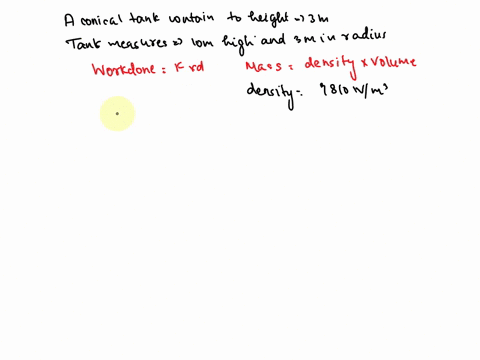 A conical tank contain to height → 3m
Tank measures → 10m high and 3m in radius
Workdone = F×d Mass = density × volume
density = 9810 N/m³